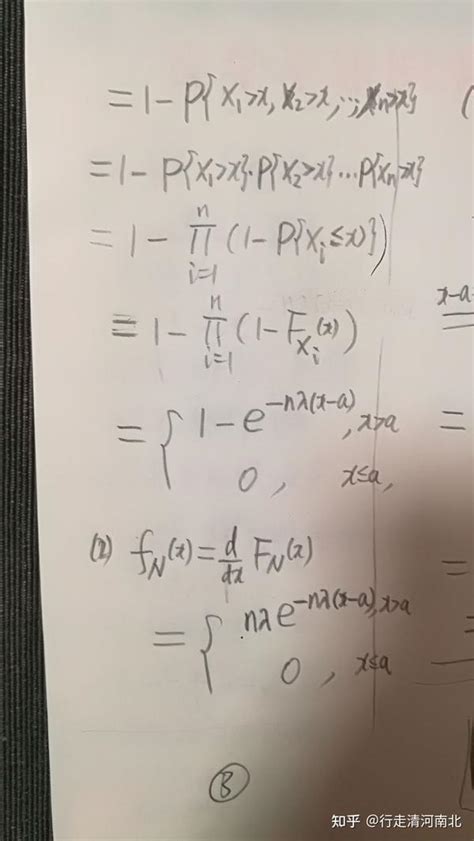 = 1 - P{X₁>x, X₂>x, ..., Xₙ>x} (
= 1 - P{X₁>x}·P{X₂>x}...P{Xₙ>x}
= 1 - ∏ᵢ₌₁ⁿ (1 - P{Xᵢ≤x})
= 1 - ∏ᵢ₌₁ⁿ (1 - F_{Xᵢ}(x))
x-a=
= { 1 - e^{-nλ(x-a)}, x>a =
0, x≤a,
(2) f_N(x) = d/dx F_N(x)
= { nλe^{-nλ(x-a)}, x>a
0, x≤a
③
知乎 @行走清河南北